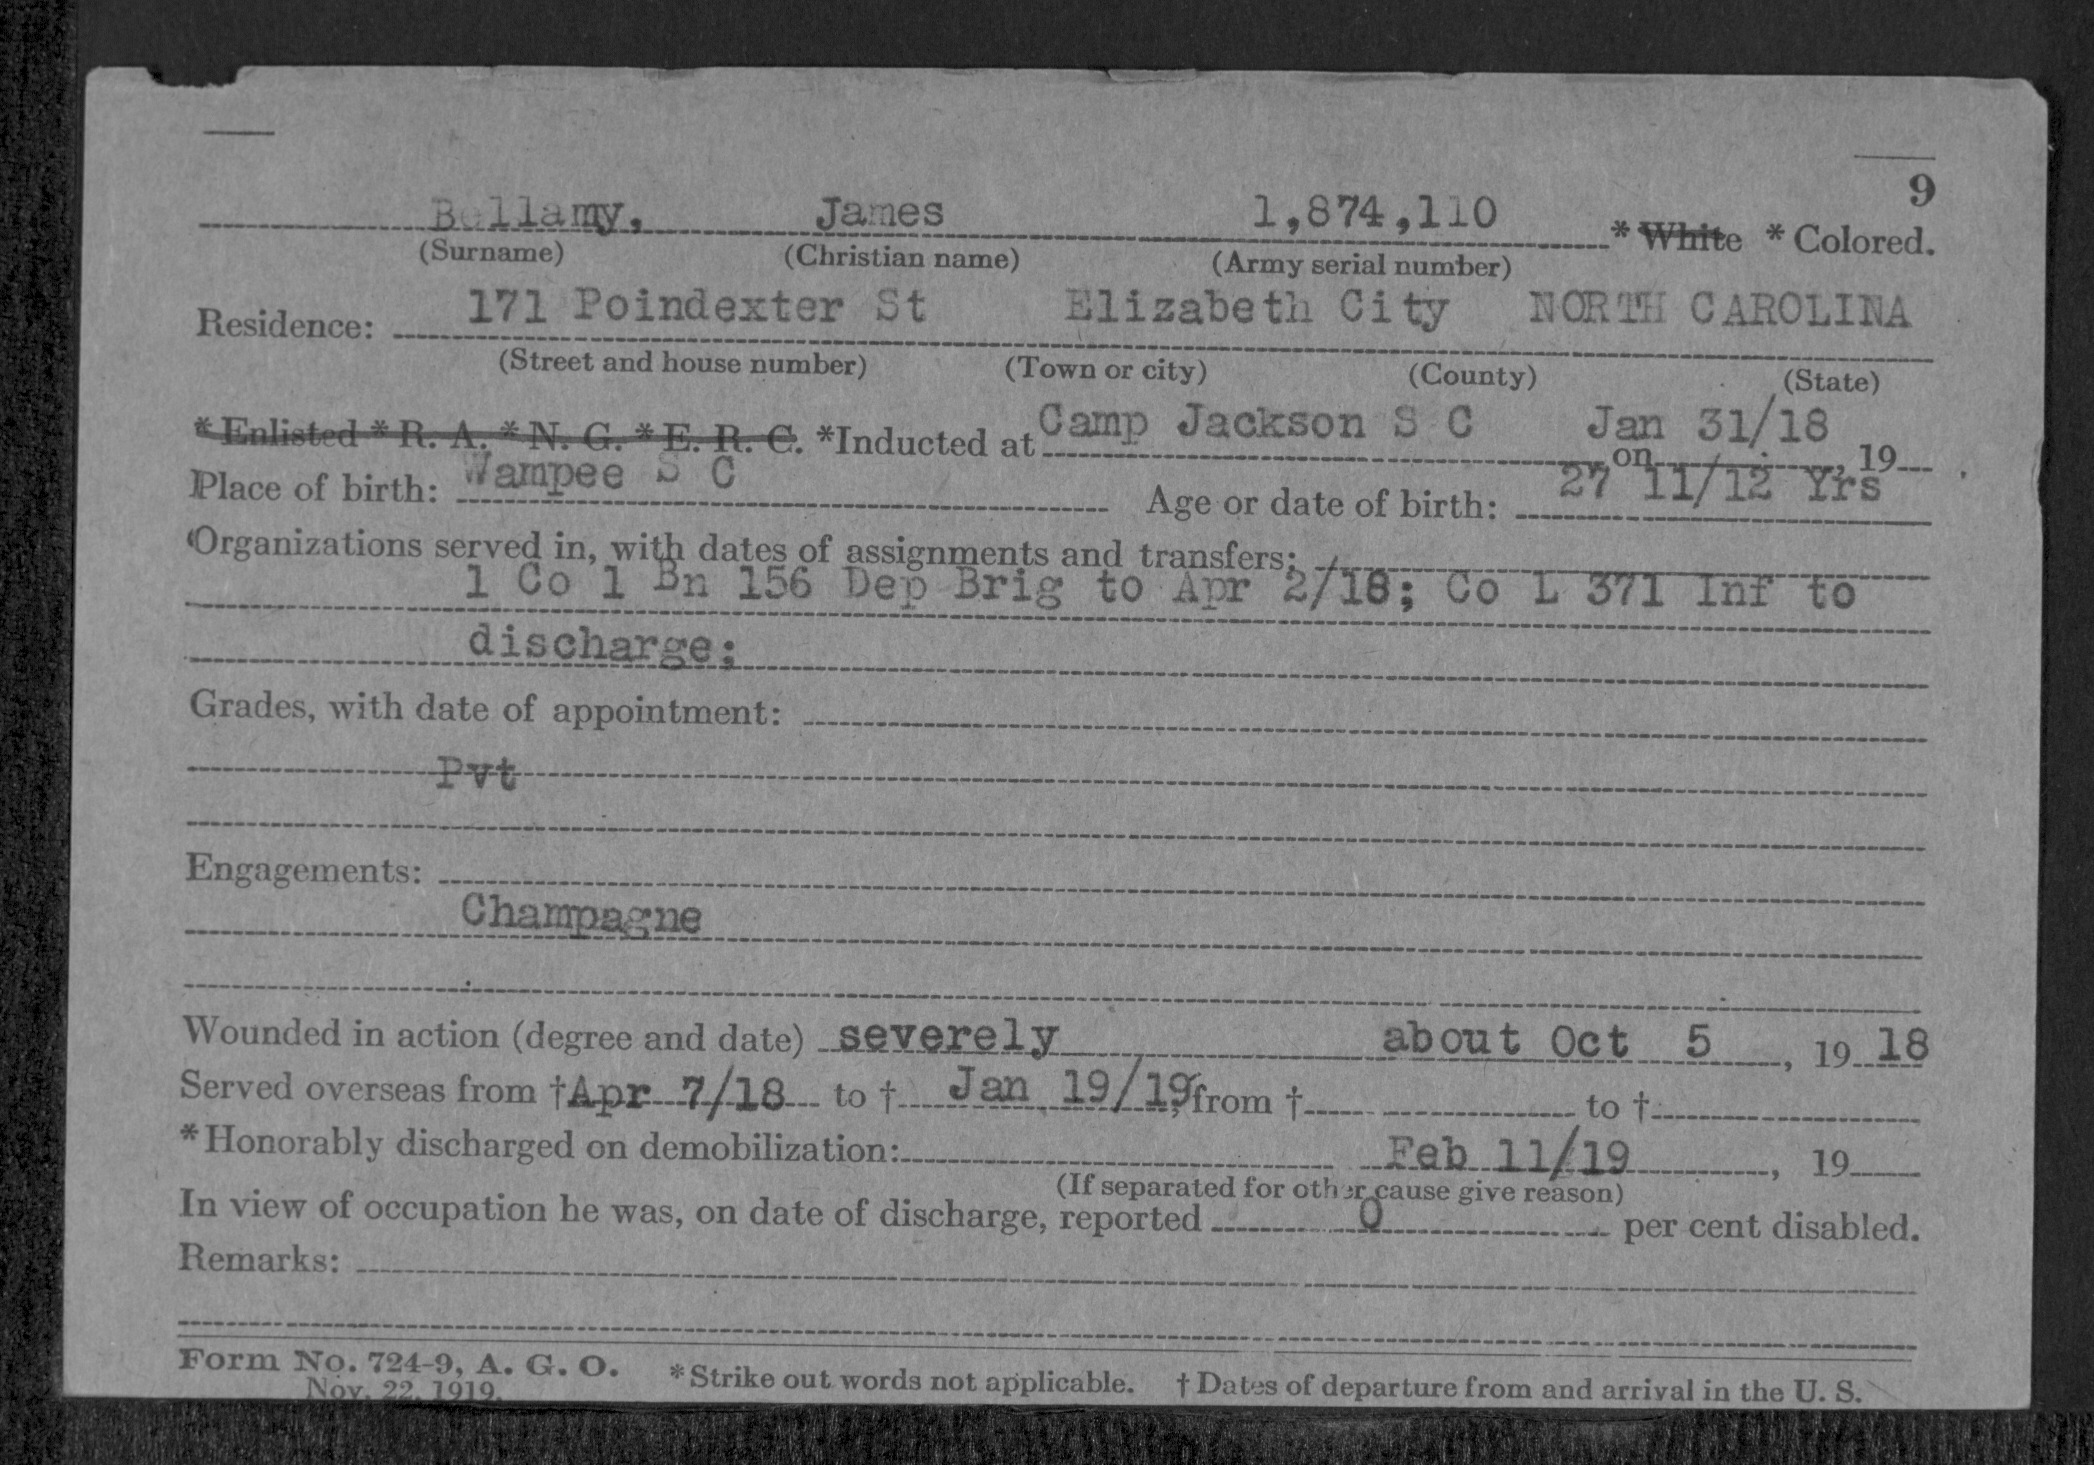 9
Bellamy, James 1,874,110 * White * Colored.
(Surname) (Christian name) (Army serial number)
Residence: 171 Poindexter St Elizabeth City NORTH CAROLINA
(Street and house number) (Town or city) (County) (State)
* Enlisted * R. A. * N. G. * E. R. C. *Inducted at Camp Jackson S C on Jan 31/18, 19
Place of birth: Wampee S C Age or date of birth: 27 11/12 Yrs
Organizations served in, with dates of assignments and transfers:
1 Co 1 Bn 156 Dep Brig to Apr 2/18; Co L 371 Inf to
discharge;
Grades, with date of appointment:
Pvt
Engagements:
Champagne
Wounded in action (degree and date) severely about Oct 5, 19 18
Served overseas from † Apr 7/18 to † Jan 19/19, from † to †
* Honorably discharged on demobilization: Feb 11/19, 19
(If separated for other cause give reason)
In view of occupation he was, on date of discharge, reported 0 per cent disabled.
Remarks:
Form No. 724-9, A. G. O. * Strike out words not applicable. † Dates of departure from and arrival in the U. S.
Nov. 22, 1919.